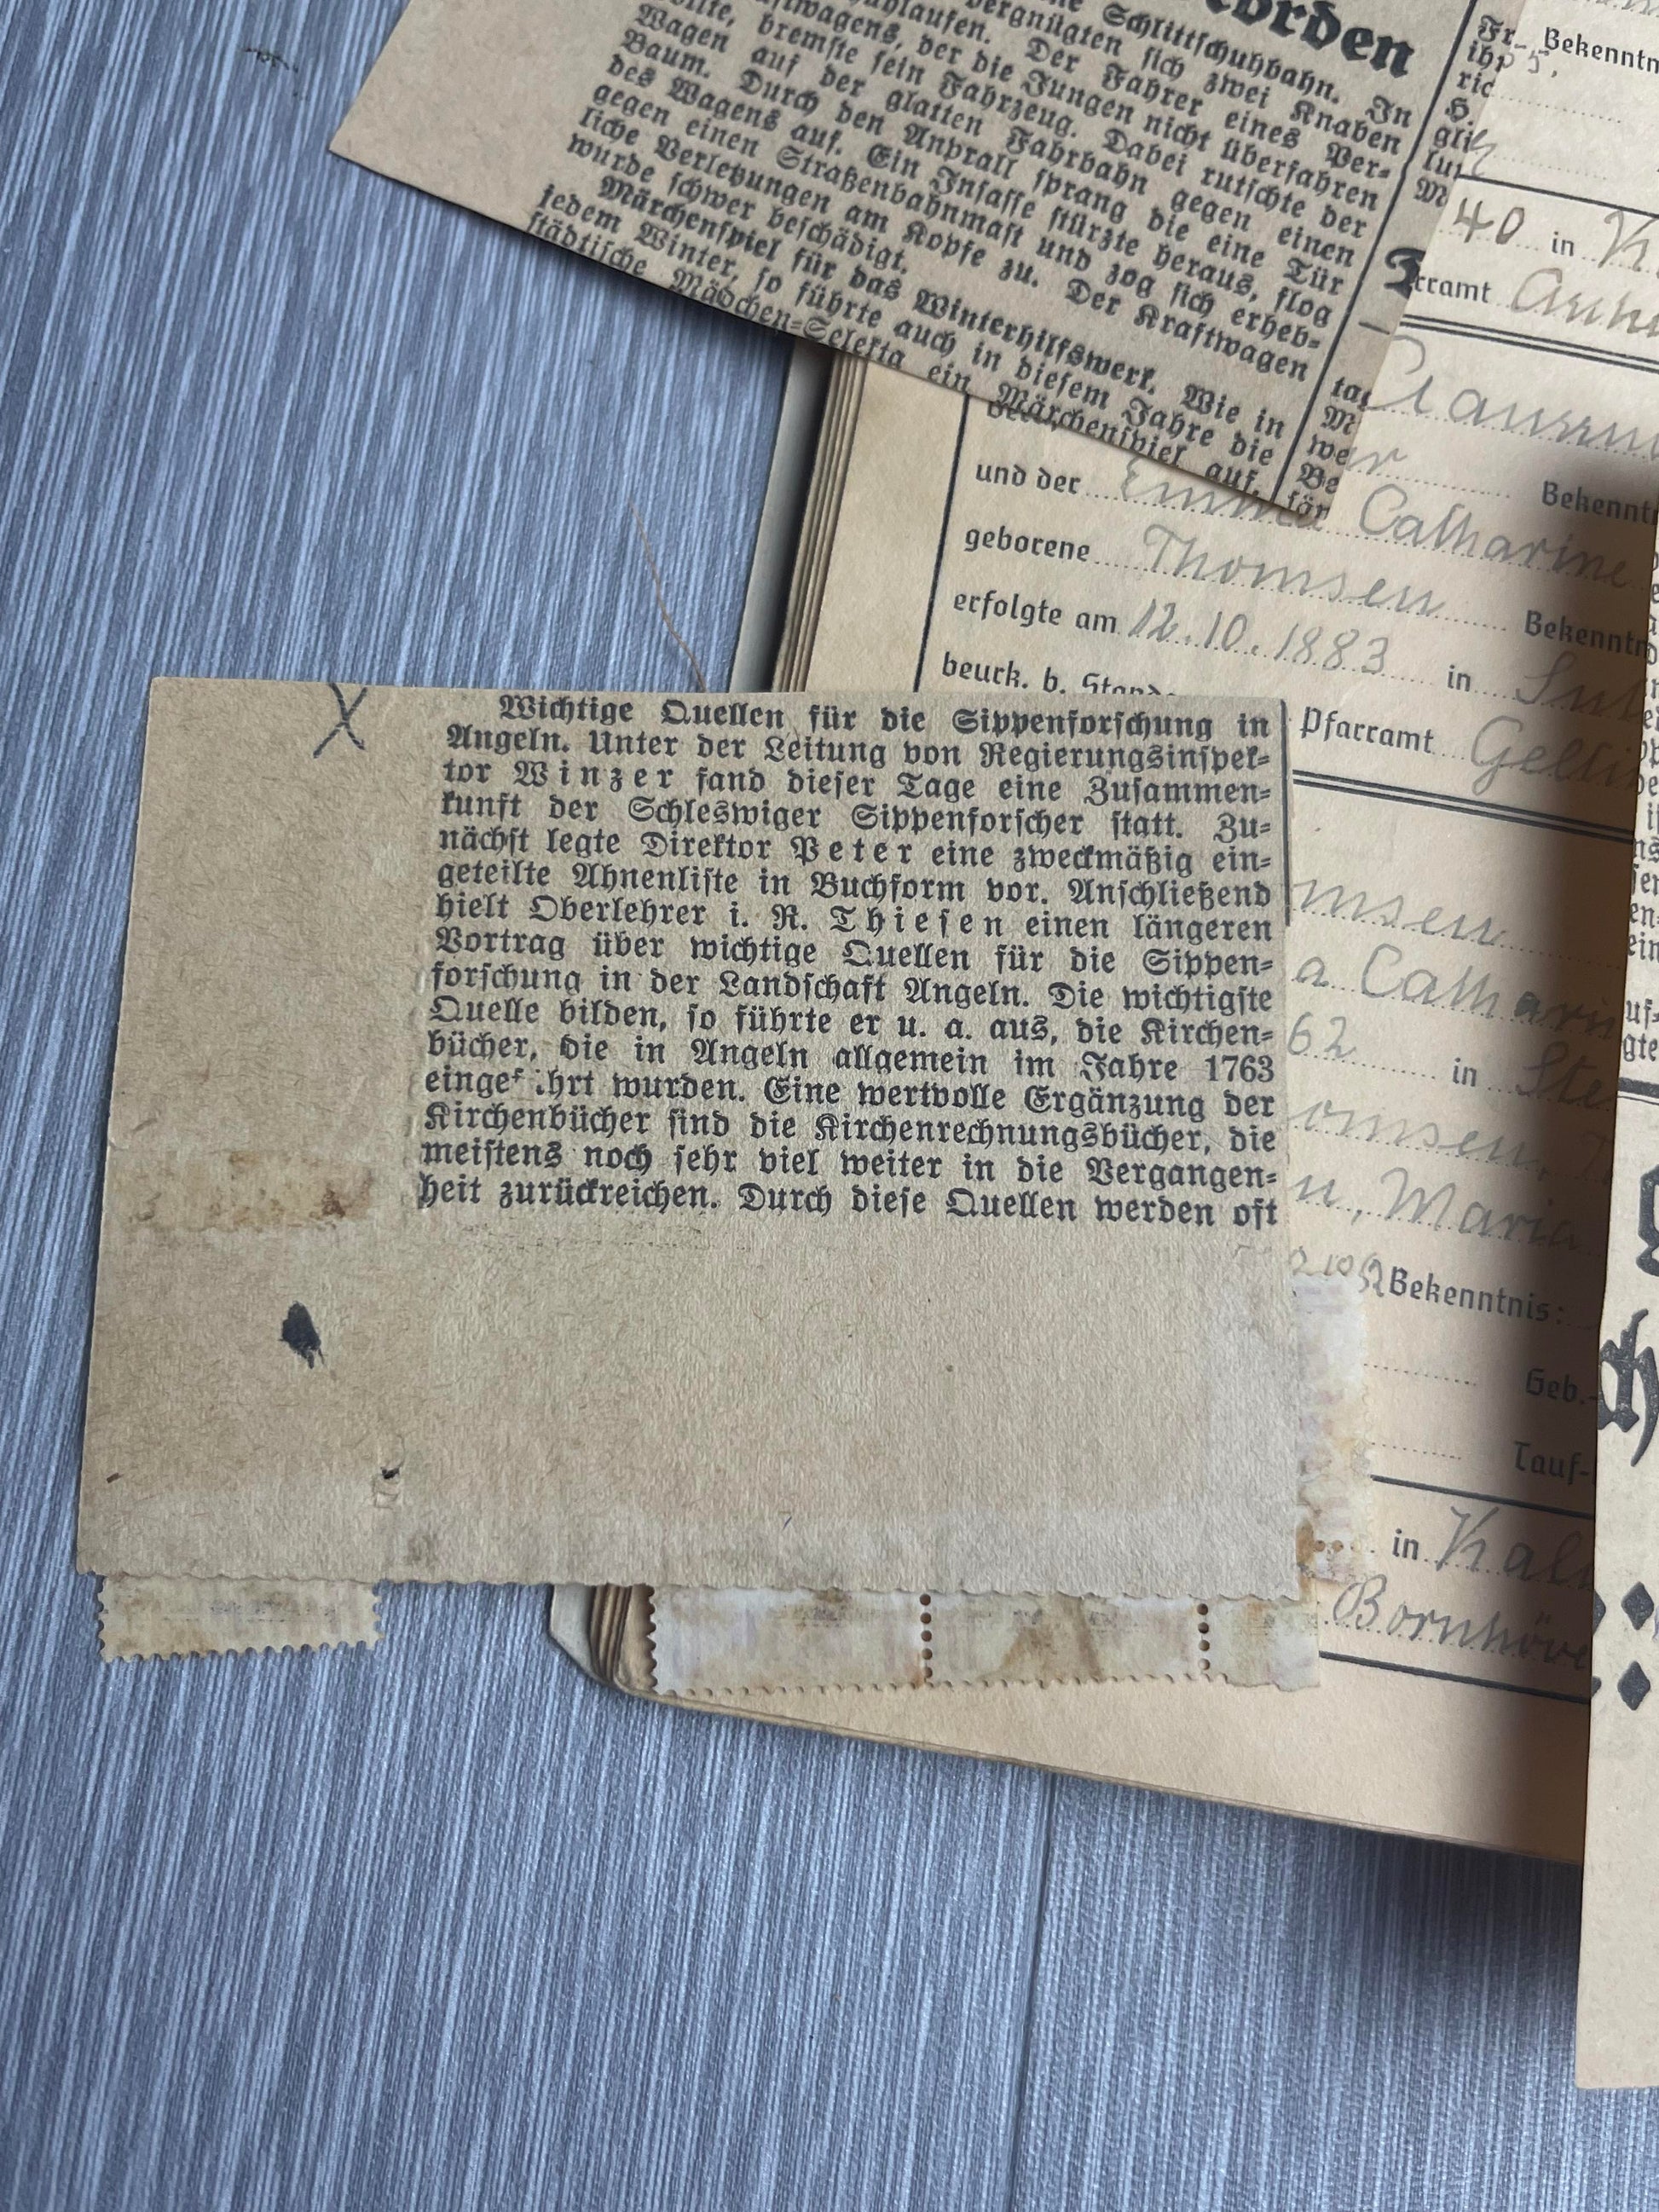 orden
Schlittschuhbahn. In
vergnügten sich zwei Knaben
Der Fahrer eines Per-
der die Jungen nicht überfahren
bremste sein Fahrzeug. Dabei rutschte der
Wagen auf der glatten Fahrbahn gegen einen
Baum. Durch den Anprall sprang die eine Tür
des Wagens auf. Ein Insasse stürzte heraus, flog
gegen einen Straßenbahnmast und zog sich erheb-
liche Verletzungen am Kopfe zu. Der Kraftwagen
wurde schwer beschädigt.
Märchenspiel für das Winterhilfswerk. Wie in
jedem Winter, so führte auch in diesem Jahre die
städtische Mädchen-Selekta ein Märchenspiel auf.
Bekenntn
40 in
rramt
Bekennt
und der Catharine
geborene Thomsen Bekenntn
erfolgte am 12.10.1883 in
beurk. b. Stand
Pfarramt
Wichtige Quellen für die Sippenforschung in
Angeln. Unter der Leitung von Regierungsinspek-
tor Winzer fand dieser Tage eine Zusammen-
kunft der Schleswiger Sippenforscher statt. Zu-
nächst legte Direktor Peter eine zweckmäßig ein-
geteilte Ahnenliste in Buchform vor. Anschließend
hielt Oberlehrer i. R. Thiesen einen längeren
Vortrag über wichtige Quellen für die Sippen-
forschung in der Landschaft Angeln. Die wichtigste
Quelle bilden, so führte er u. a. aus, die Kirchen-
bücher, die in Angeln allgemein im Jahre 1763
eingeführt wurden. Eine wertvolle Ergänzung der
Kirchenbücher sind die Kirchenrechnungsbücher, die
meistens noch sehr viel weiter in die Vergangen-
heit zurückreichen. Durch diese Quellen werden oft
msen
a Cathari
62 in
omsen
n, Maria
Bekenntnis:
Geb.-
Tauf-
in Kal
Bornhöve